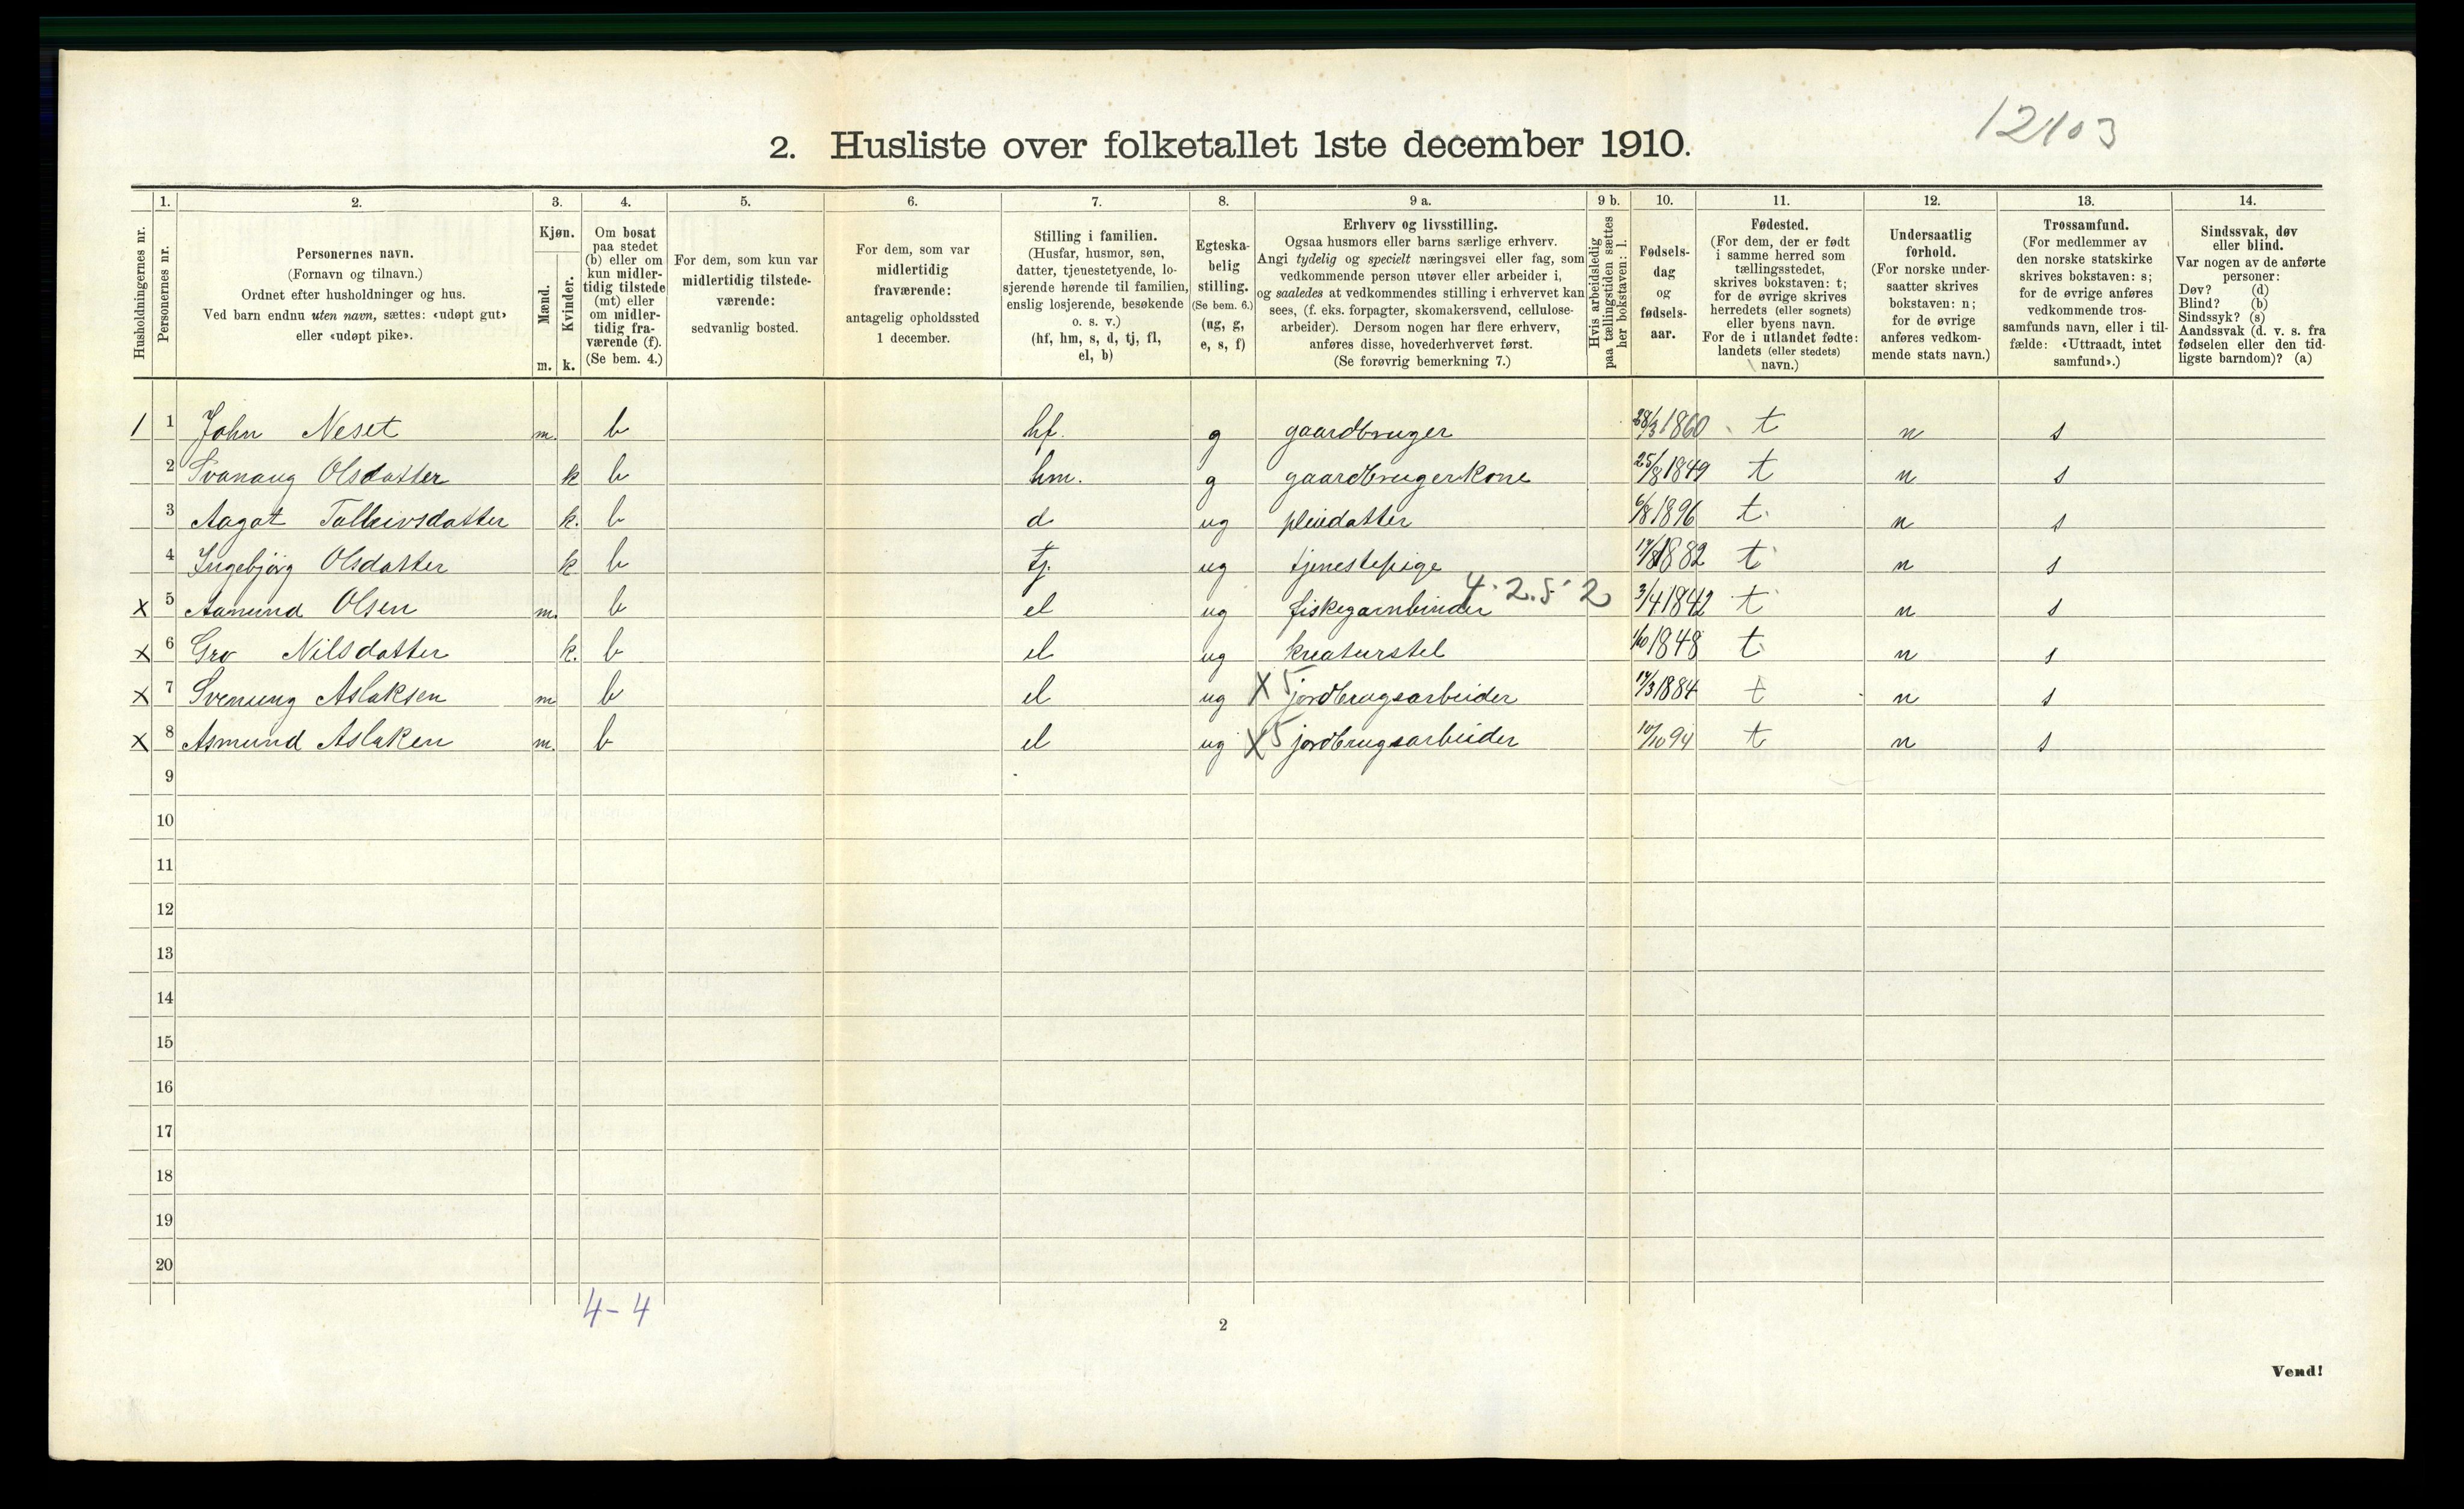 12103
2. Husliste over folketallet 1ste december 1910.
Husholdningernes nr.
1. Personernes nr.
2. Personernes navn. (Fornavn og tilnavn.) Ordnet efter husholdninger og hus. Ved barn endnu uten navn, sættes: «udøpt gut» eller «udøpt pike».
3. Kjøn. Mænd. m. Kvinder. k.
4. Om bosat paa stedet (b) eller om kun midlertidig tilstede (mt) eller om midlertidig fraværende (f). (Se bem. 4.)
5. For dem, som kun var midlertidig tilstedeværende: sedvanlig bosted.
6. For dem, som var midlertidig fraværende: antagelig opholdssted 1 december.
7. Stilling i familien. (Husfar, husmor, søn, datter, tjenestetyende, losjerende hørende til familien, enslig losjerende, besøkende o. s. v.) (hf, hm, s, d, tj, fl, el, b)
8. Egteskabelig stilling. (Se bem. 6.) (ug, g, e, s, f)
9 a. Erhverv og livsstilling. Ogsaa husmors eller barns særlige erhverv. Angi tydelig og specielt næringsvei eller fag, som vedkommende person utøver eller arbeider i, og saaledes at vedkommendes stilling i erhvervet kan sees, (f. eks. forpagter, skomakersvend, cellulosearbeider). Dersom nogen har flere erhverv, anføres disse, hovederhvervet først. (Se forøvrig bemerkning 7.)
9 b. Hvis arbeidsledig paa tællingstiden sættes her bokstaven: l.
10. Fødselsdag og fødselsaar.
11. Fødested. (For dem, der er født i samme herred som tællingsstedet, skrives bokstaven: t; for de øvrige skrives herredets (eller sognets) eller byens navn. For de i utlandet fødte: landets (eller stedets) navn.)
12. Undersaatlig forhold. (For norske undersaatter skrives bokstaven: n; for de øvrige anføres vedkommende stats navn.)
13. Trossamfund. (For medlemmer av den norske statskirke skrives bokstaven: s; for de øvrige anføres vedkommende trossamfunds navn, eller i tilfælde: «Uttraadt, intet samfund».)
14. Sindssvak, døv eller blind. Var nogen av de anførte personer: Døv? (d) Blind? (b) Sindssyk? (s) Aandssvak (d. v. s. fra fødselen eller den tidligste barndom)? (a)
1 1 John Neset m. b hf. g gaardbruger 28/3 1860 t n s
2 Svanaug Olsdatter k b hm. g gaardbrugerkone 25/8 1849 t n s
3 Aagot Talleivsdatter k. b d ug pleiedatter 6/8 1896 t. n s
4 Ingebjørg Olsdatter k b tj. ug tjenestepige 17/8 1882 t n s
x 5 Aamund Olsen m. b el ug fiskegarnbinder 4.2.5 2 3/4 1842 t n s
x 6 Gro Nilsdatter k. b el ug kreaturstel 1/10 1848 t n s
x 7 Svenung Aslaksen m b el ug x 5 jordbrugsarbeider 14/3 1884 t n s
x 8 Asmund Aslaken m. b el ug x 5 jordbrugsarbeider 10/10 94 t n s
9
10
11
12
13
14
15
16
17
18
19
20
4-4
2
Vend!